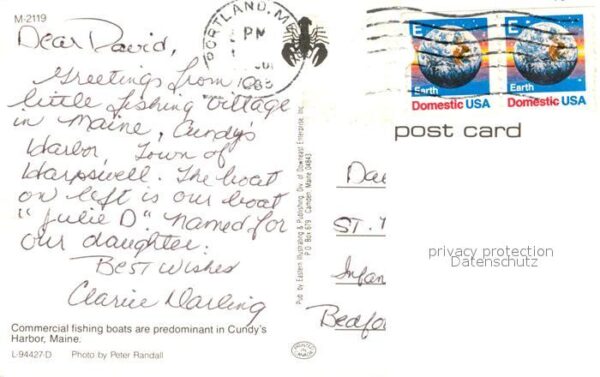 M-2119
Dear David,
Greetings from
little fishing village
in Maine, Cundy's
Harbor, Town of
Harpswell. The boat
on left is our boat
"Julie D" named for
our daughter.
Best Wishes
Clarice Darling
Commercial fishing boats are predominant in Cundy's
Harbor, Maine.
L-94427-D Photo by Peter Randall
PORTLAND, M
PM
Pub by Eastern Illustrating & Publishing, Div of Downeast Enterprise, Inc.
P.O. Box 679 Camden, Maine 04843
PRINTED
IN MAINE
E
Earth
Domestic USA
E
Earth
Domestic USA
post card
ST.
Bedfo
privacy protection
Datenschutz